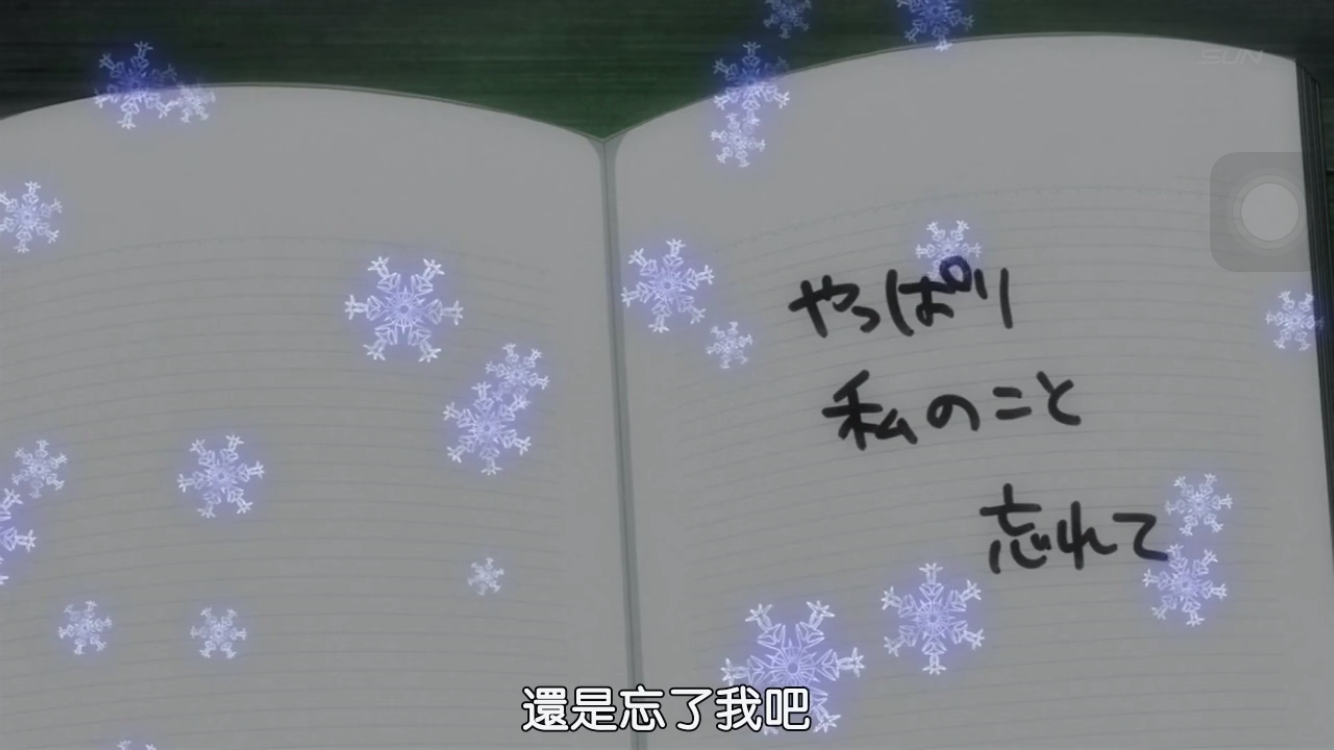 SUN
やっぱり
私のこと
忘れて
還是忘了我吧